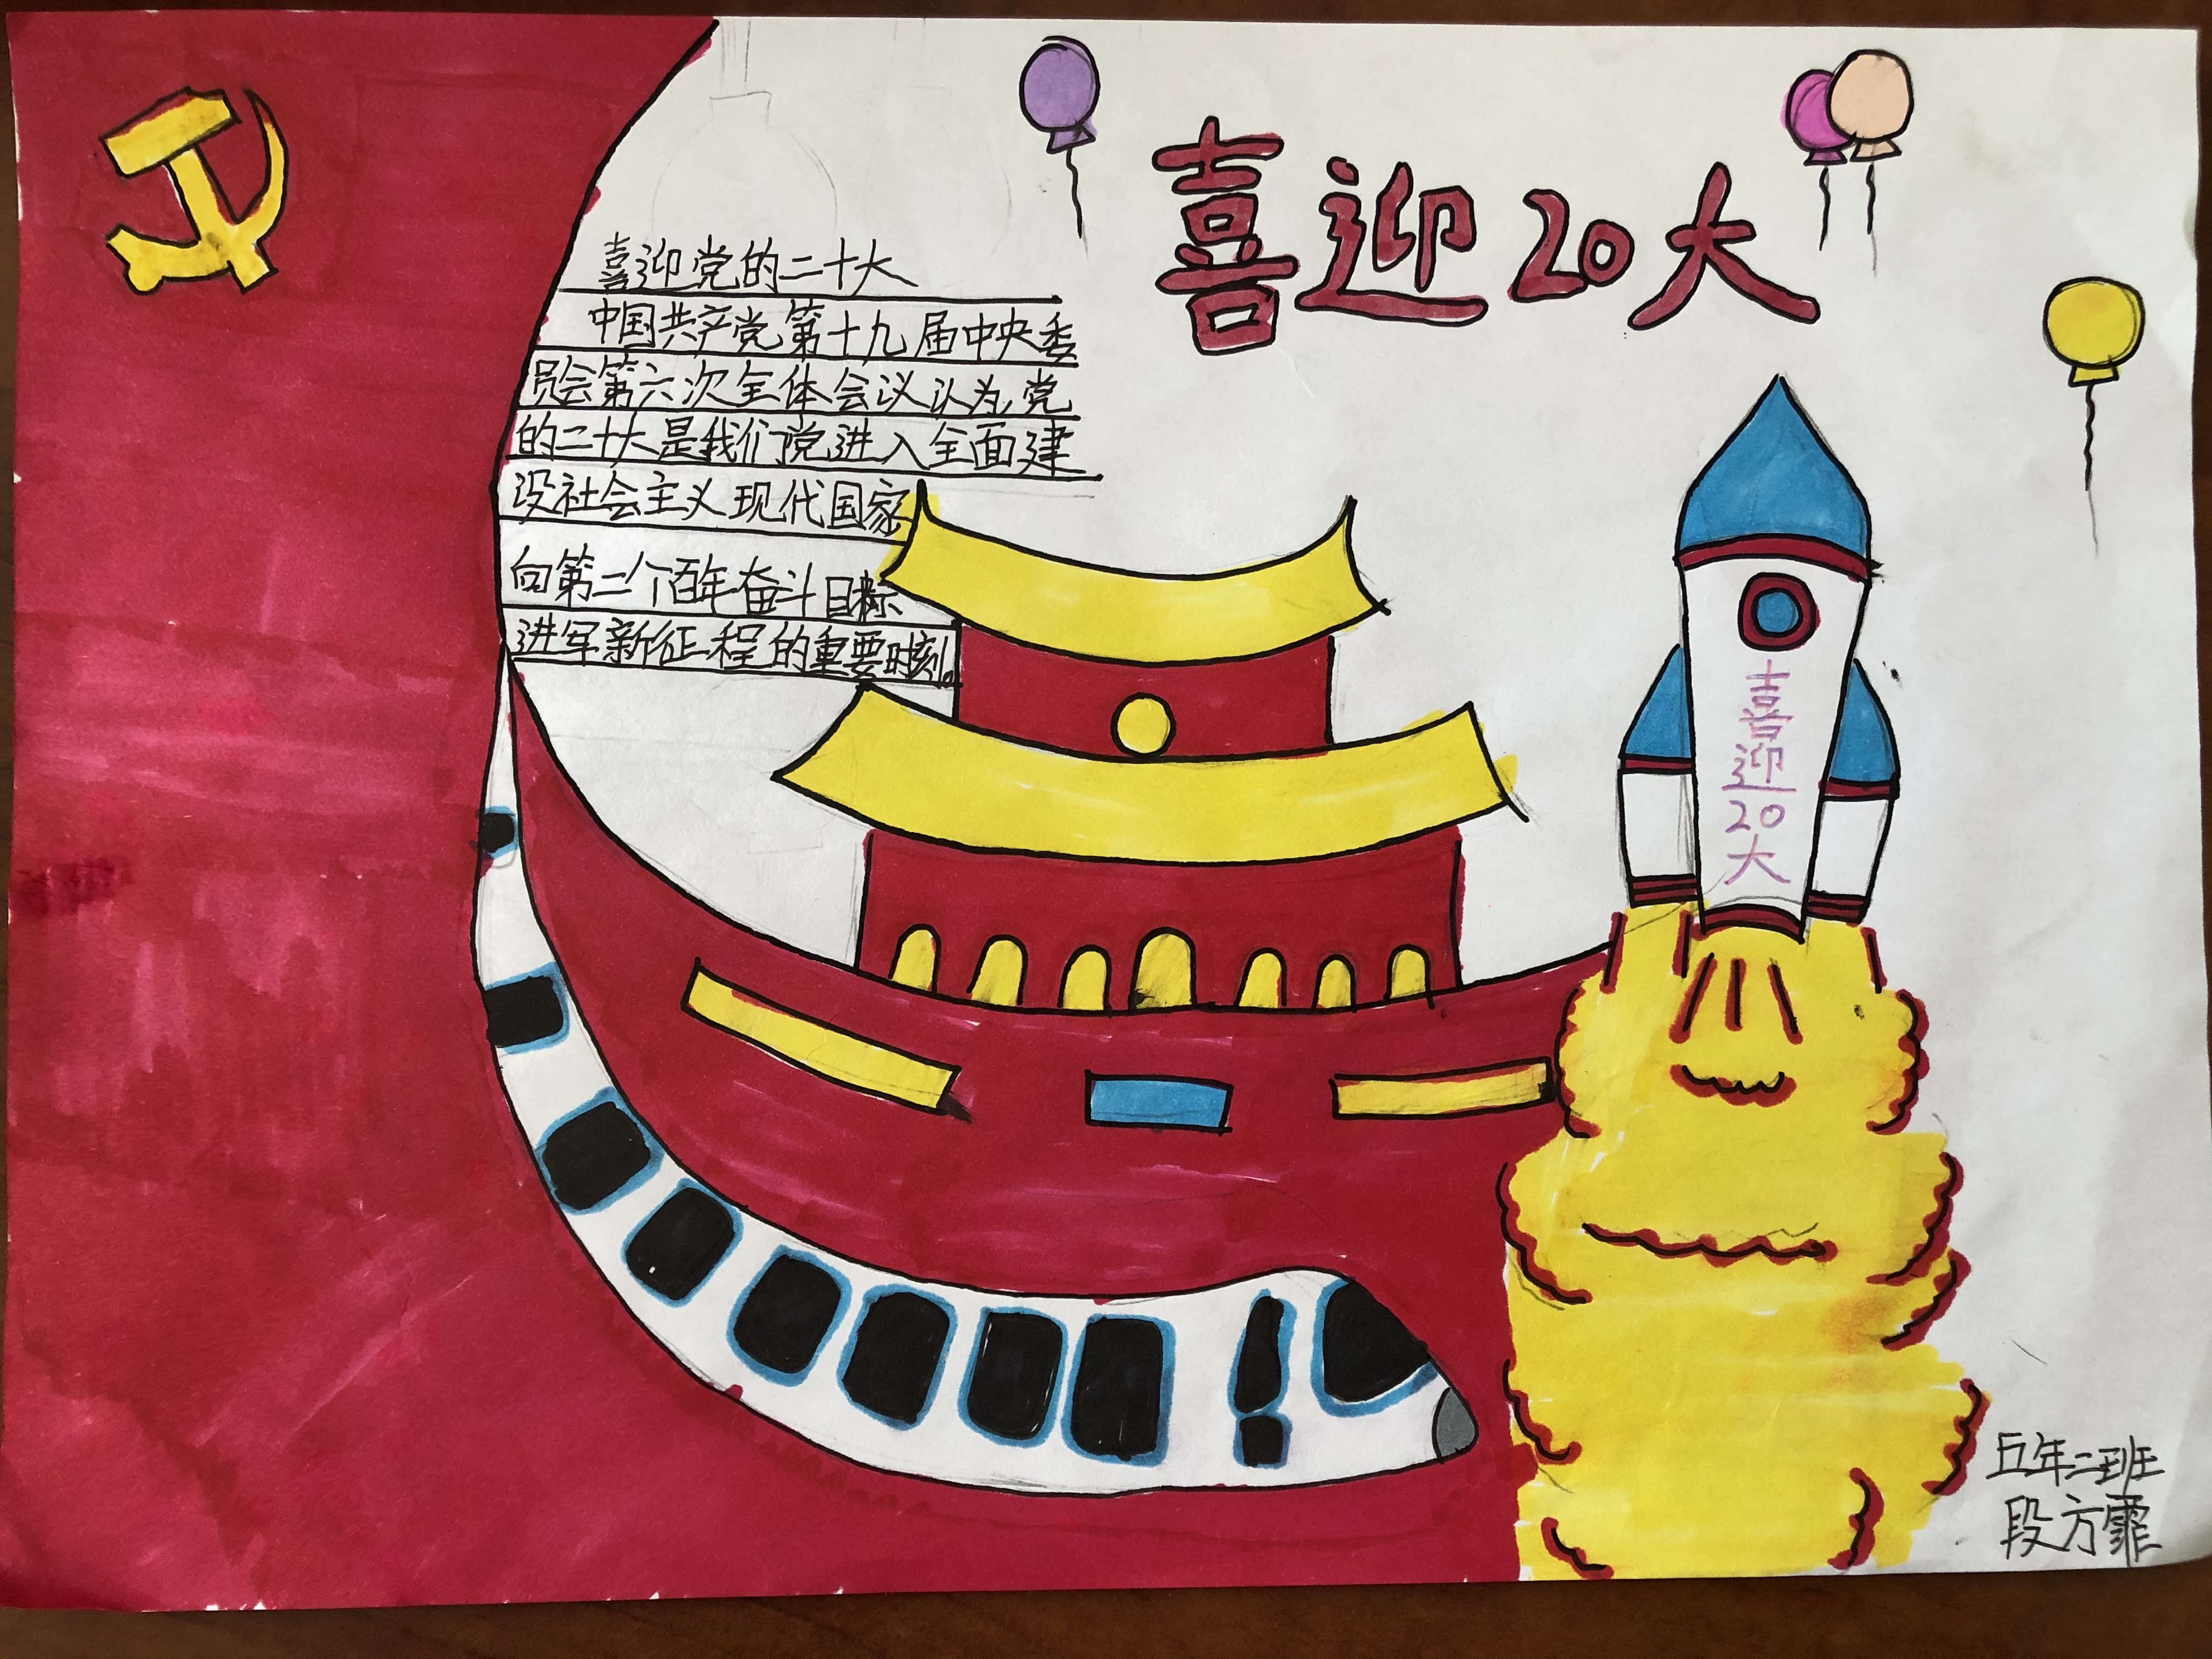 喜迎20大
喜迎党的二十大
中国共产党第十九届中央委
员会第六次全体会议认为,党
的二十大是我们党进入全面建
设社会主义现代国家
向第二个百年奋斗目标
进军新征程的重要时刻。
喜迎20大
五年二班
段方霏